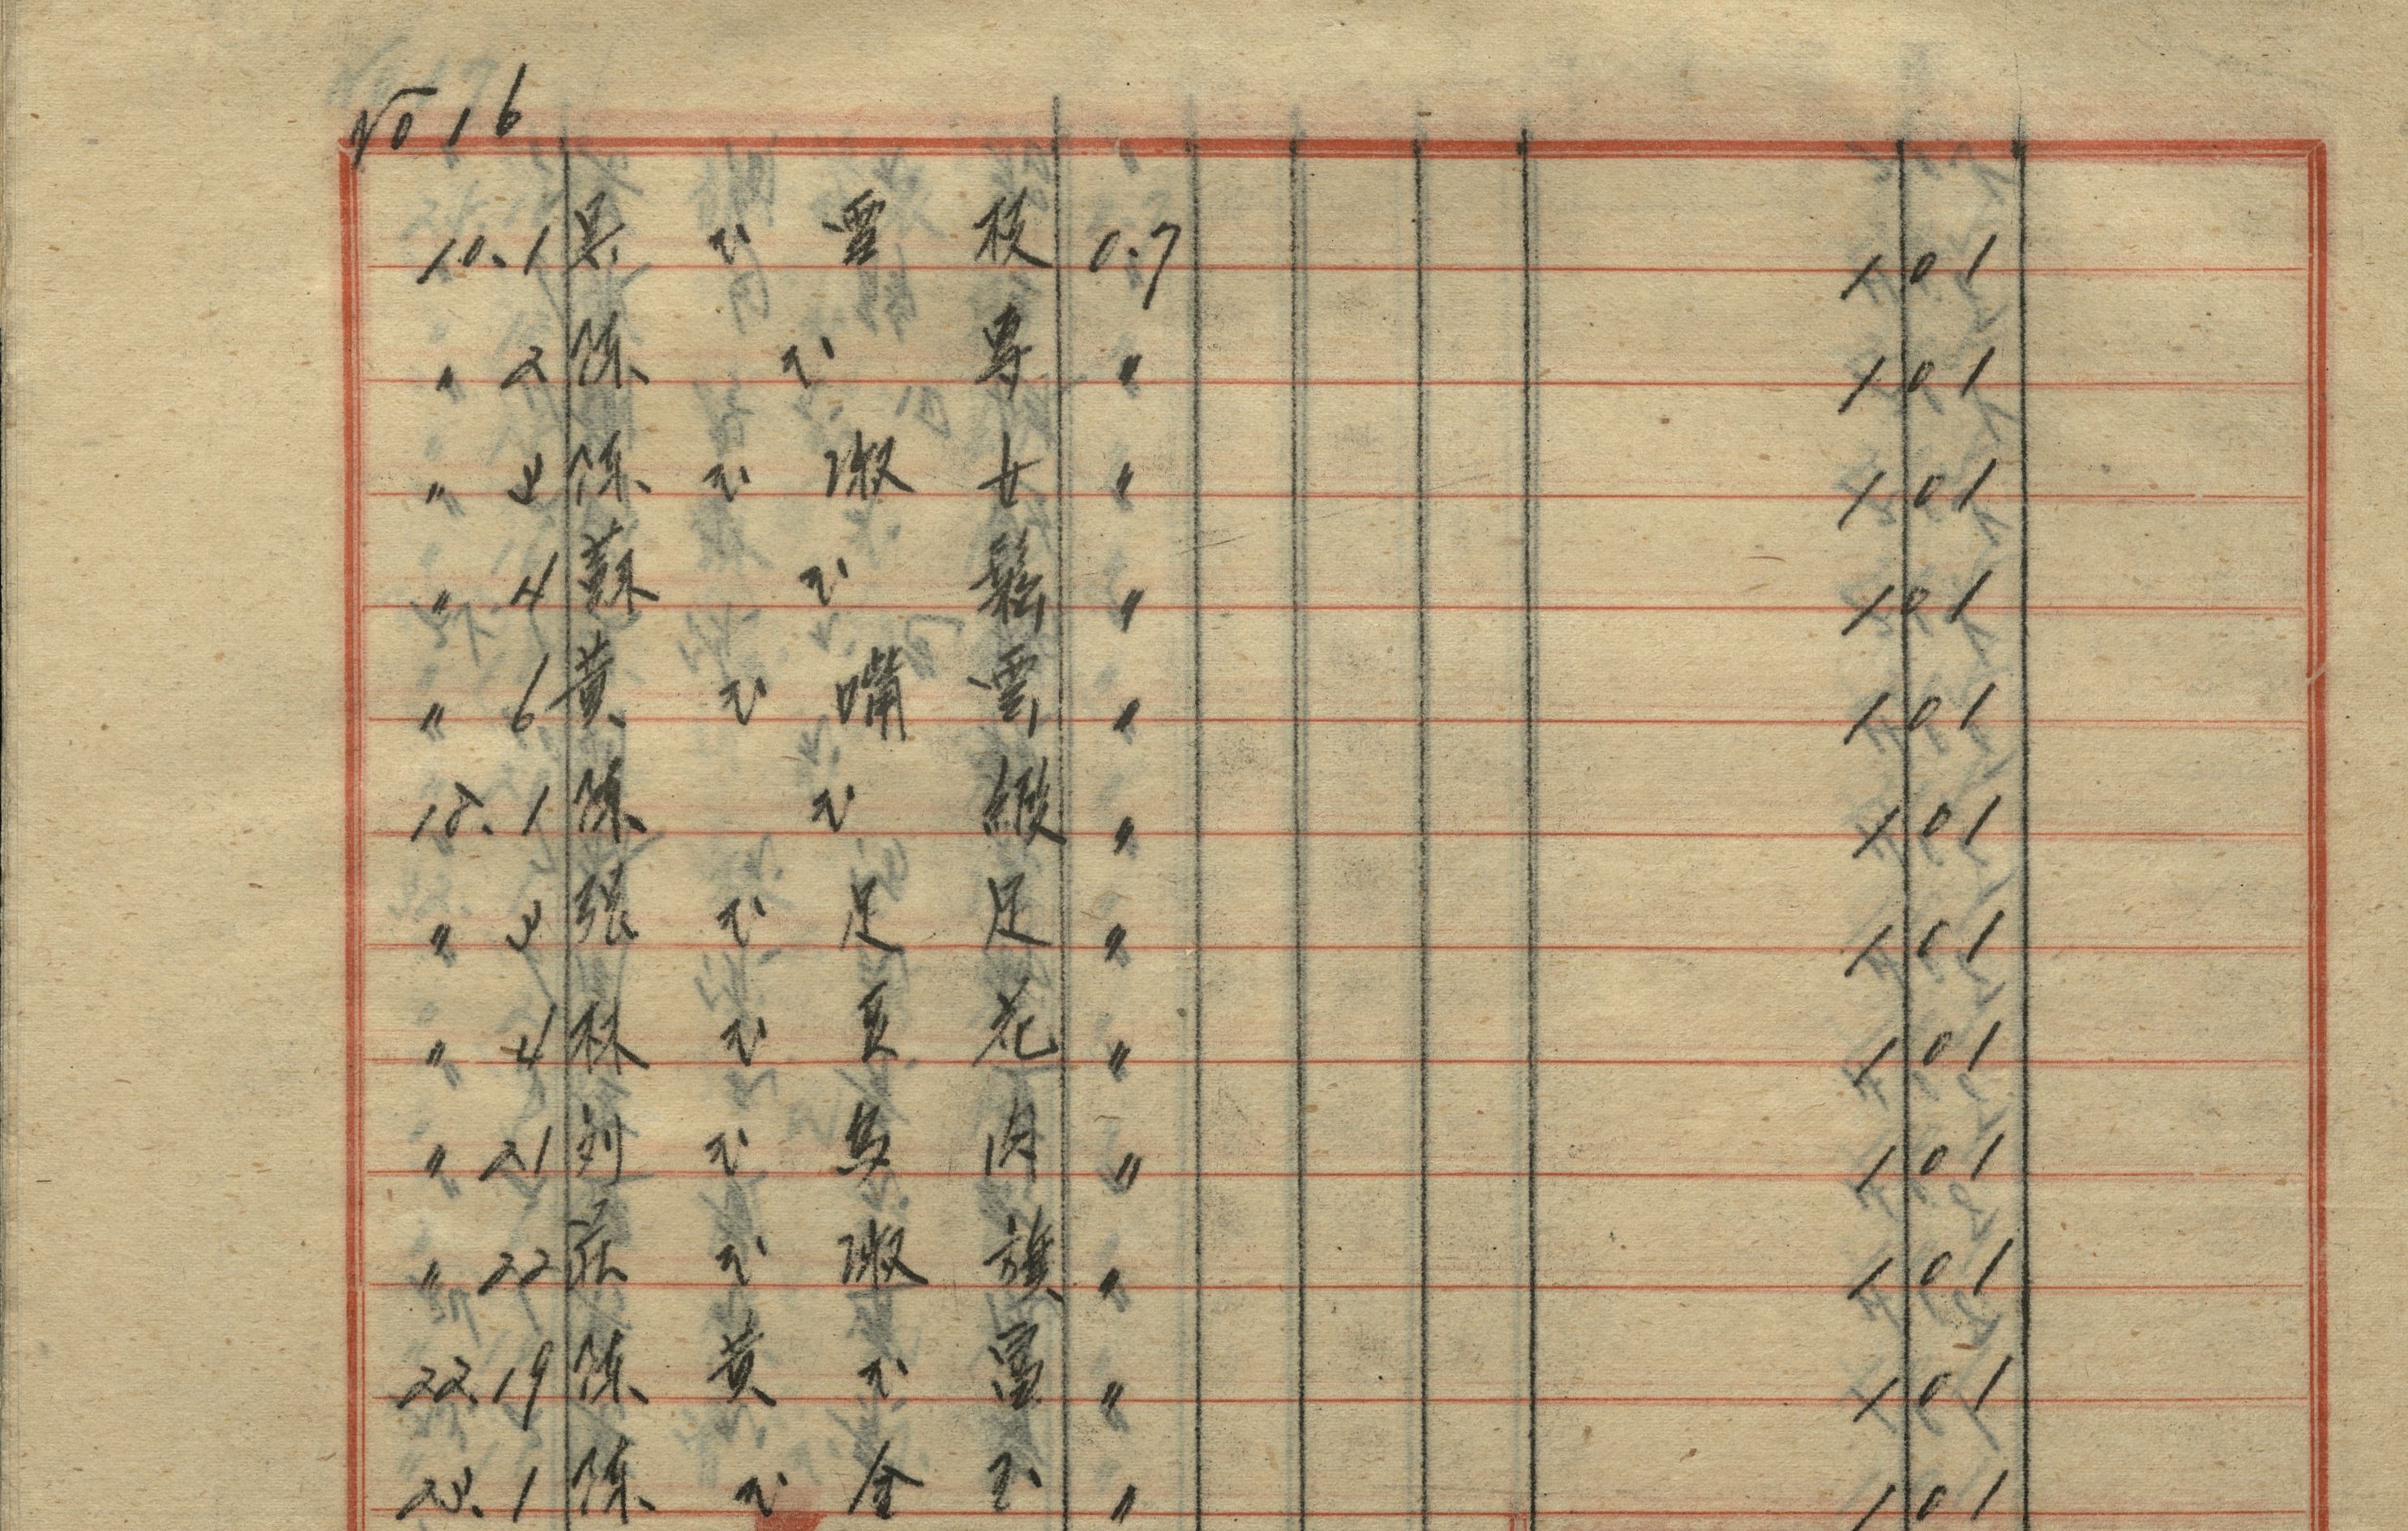 No 16
10.1 吳 氏 雲 枝 0.7 101
〃 2 陳 氏 專 〃 101
〃 3 陳 氏 淑 女 〃 101
〃 4 蘇 氏 鬆 〃 101
〃 6 黃 氏 嘴 雲 〃 101
18.1 陳 氏 緞 〃 101
〃 3 張 氏 足 足 〃 101
〃 4 林 氏 花 〃 101
〃 21 刘 氏 〃 101
〃 22 莊 氏 淑 旗 〃 101
22.19 陳 黃 氏 富 〃 101
23.1 陳 氏 金 玉 〃 101